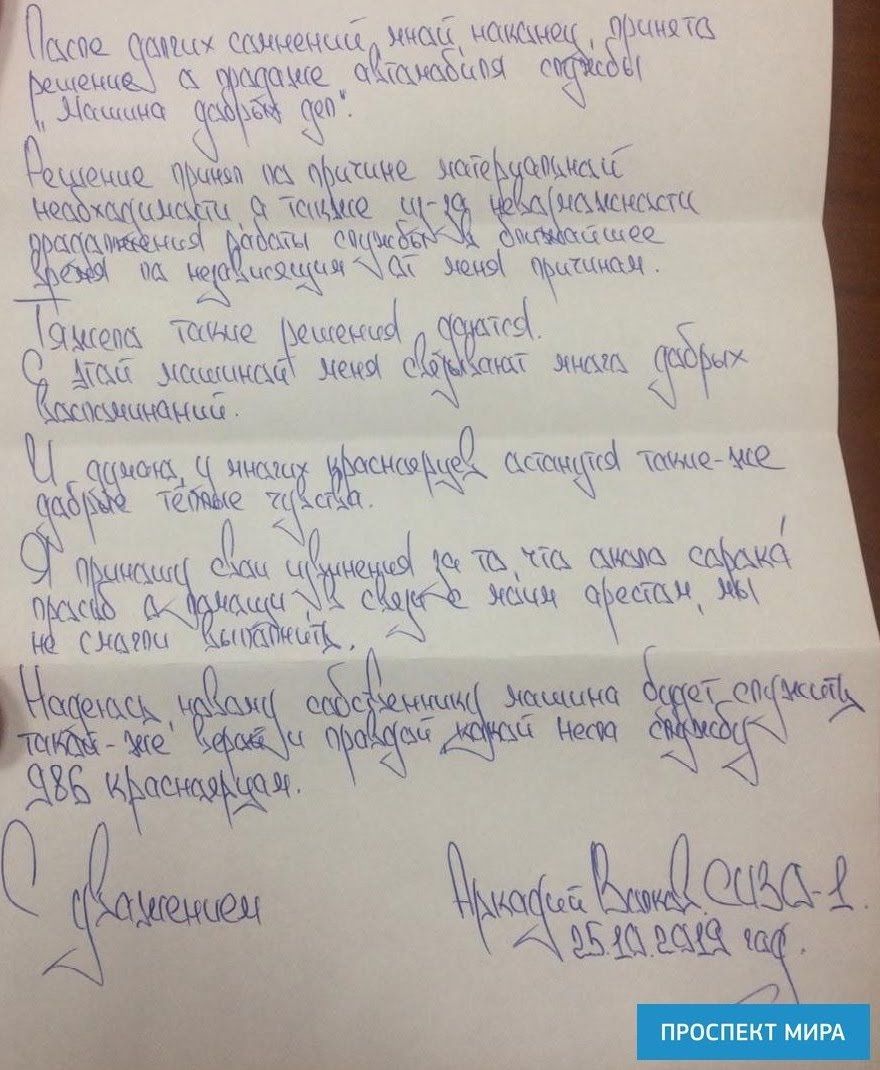 После долгих сомнений, мной, наконец, принято
решение о продаже автомобиля службы
"Машина добрых дел".
Решение принял по причине материальной
необходимости, а также из-за невозможности
продолжения работы службы в ближайшее
время по независящим от меня причинам.
Тяжело такие решения даются.
С этой машиной меня связывают много добрых
воспоминаний.
И думаю, у многих красноярцев останутся такие-же
добрые тёплые чувства.
Я приношу свои извинения за то, что около сорока
просьб о помощи, в связи с моим арестом, мы
не смогли выполнить.
Надеюсь, новому собственнику машина будет служить
такой-же верой и правдой, какой несла службу
986 красноярцам.
С уважением
Аркадий Волков. СИЗО-1.
25.10.2019 год.
ПРОСПЕКТ МИРА